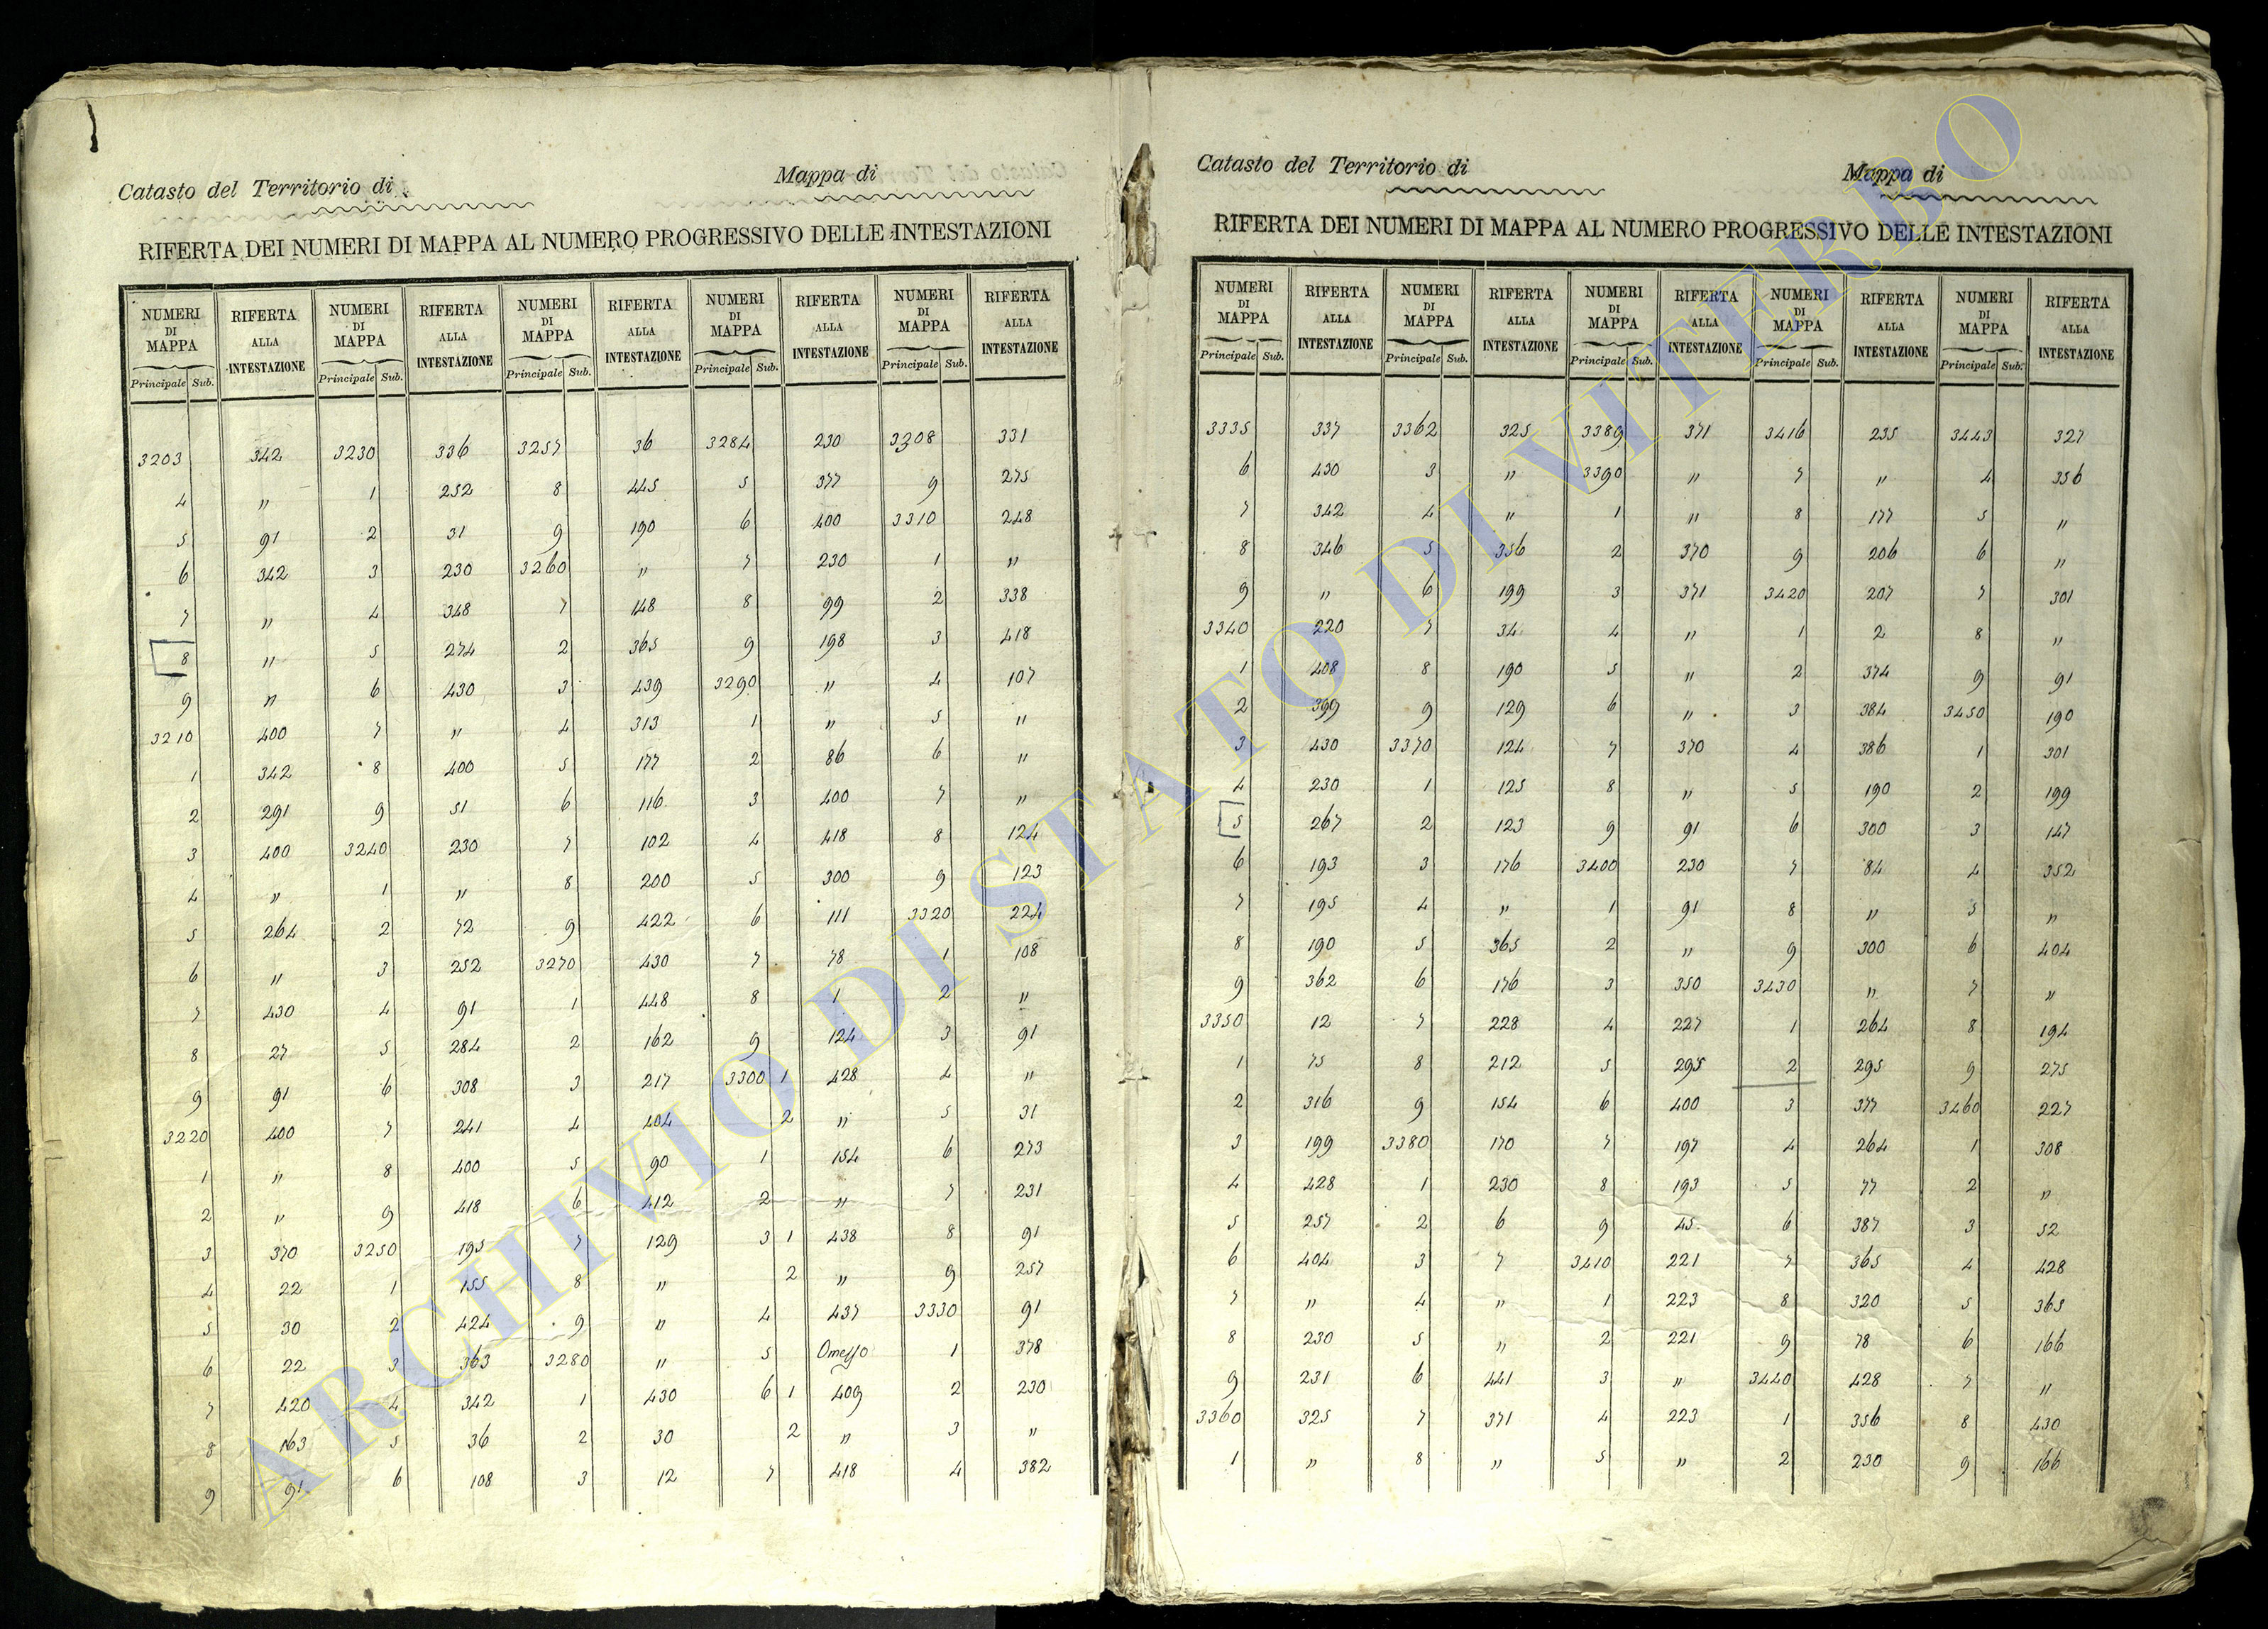 Catasto del Territorio di Mappa di
RIFERTA DEI NUMERI DI MAPPA AL NUMERO PROGRESSIVO DELLE INTESTAZIONI
NUMERI DI MAPPA RIFERTA ALLA INTESTAZIONE NUMERI DI MAPPA RIFERTA ALLA INTESTAZIONE NUMERI DI MAPPA RIFERTA ALLA INTESTAZIONE NUMERI DI MAPPA RIFERTA ALLA INTESTAZIONE NUMERI DI MAPPA RIFERTA ALLA INTESTAZIONE
Principale Sub. Principale Sub. Principale Sub. Principale Sub. Principale Sub.
3203 342 3230 336 3257 36 3284 230 3308 331
4 " 1 252 8 445 5 377 9 275
5 91 2 31 9 190 6 400 3310 248
6 342 3 230 3260 " 7 230 1 "
7 " 4 348 1 148 8 99 2 338
8 " 5 274 2 365 9 198 3 418
9 " 6 430 3 439 3290 " 4 107
3210 400 7 " 4 313 1 " 5 "
1 342 8 400 5 177 2 86 6 "
2 291 9 51 6 116 3 400 7 "
3 400 3240 230 7 102 4 418 8 124
4 " 1 " 8 200 5 300 9 123
5 264 2 72 9 422 6 111 3320 224
6 " 3 252 3270 430 7 78 1 108
7 430 4 91 1 448 8 1 2 "
8 27 5 284 2 162 9 124 3 91
9 91 6 308 3 217 3300 1 428 4 "
3220 400 7 241 4 404 2 " 5 31
1 " 8 400 5 90 1 154 6 273
2 " 9 418 6 412 2 " 7 231
3 370 3250 195 7 129 3 1 438 8 91
4 22 1 155 8 " 2 " 9 257
5 30 2 424 9 " 4 437 3330 91
6 22 3 363 3280 " 5 Omesso 1 378
7 420 4 342 1 430 6 1 409 2 230
8 163 5 36 2 30 2 " 3 "
9 91 6 108 3 12 7 418 4 382
Catasto del Territorio di Mappa di
RIFERTA DEI NUMERI DI MAPPA AL NUMERO PROGRESSIVO DELLE INTESTAZIONI
NUMERI DI MAPPA RIFERTA ALLA INTESTAZIONE NUMERI DI MAPPA RIFERTA ALLA INTESTAZIONE NUMERI DI MAPPA RIFERTA ALLA INTESTAZIONE NUMERI DI MAPPA RIFERTA ALLA INTESTAZIONE NUMERI DI MAPPA RIFERTA ALLA INTESTAZIONE
Principale Sub. Principale Sub. Principale Sub. Principale Sub. Principale Sub.
3335 337 3362 325 3389 371 3416 235 3443 327
6 430 3 " 3390 " 7 " 4 356
7 342 4 " 1 " 8 177 5 "
8 346 5 356 2 370 9 206 6 "
9 " 6 199 3 371 3420 207 7 301
3340 220 7 34 4 " 1 2 8 "
1 408 8 190 5 " 2 374 9 91
2 399 9 129 6 " 3 384 3450 190
3 430 3370 124 7 370 4 386 1 301
4 230 1 125 8 " 5 190 2 199
5 267 2 123 9 91 6 300 3 147
6 193 3 176 3400 230 7 84 4 352
7 195 4 " 1 91 8 " 5 "
8 190 5 365 2 " 9 300 6 404
9 362 6 176 3 350 3430 " 7 "
3350 12 7 228 4 227 1 264 8 194
1 75 8 212 5 295 2 295 9 275
2 316 9 154 6 400 3 377 3460 227
3 199 3380 170 7 197 4 264 1 308
4 428 1 230 8 193 5 77 2 "
5 257 2 6 9 45 6 387 3 52
6 404 3 7 3410 221 7 365 4 428
7 " 4 " 1 223 8 320 5 365
8 230 5 " 2 221 9 78 6 166
9 231 6 441 3 " 3440 428 7 "
3360 325 7 371 4 223 1 356 8 430
1 " 8 " 5 " 2 230 9 166
ARCHIVIO DI STATO DI VITERBO